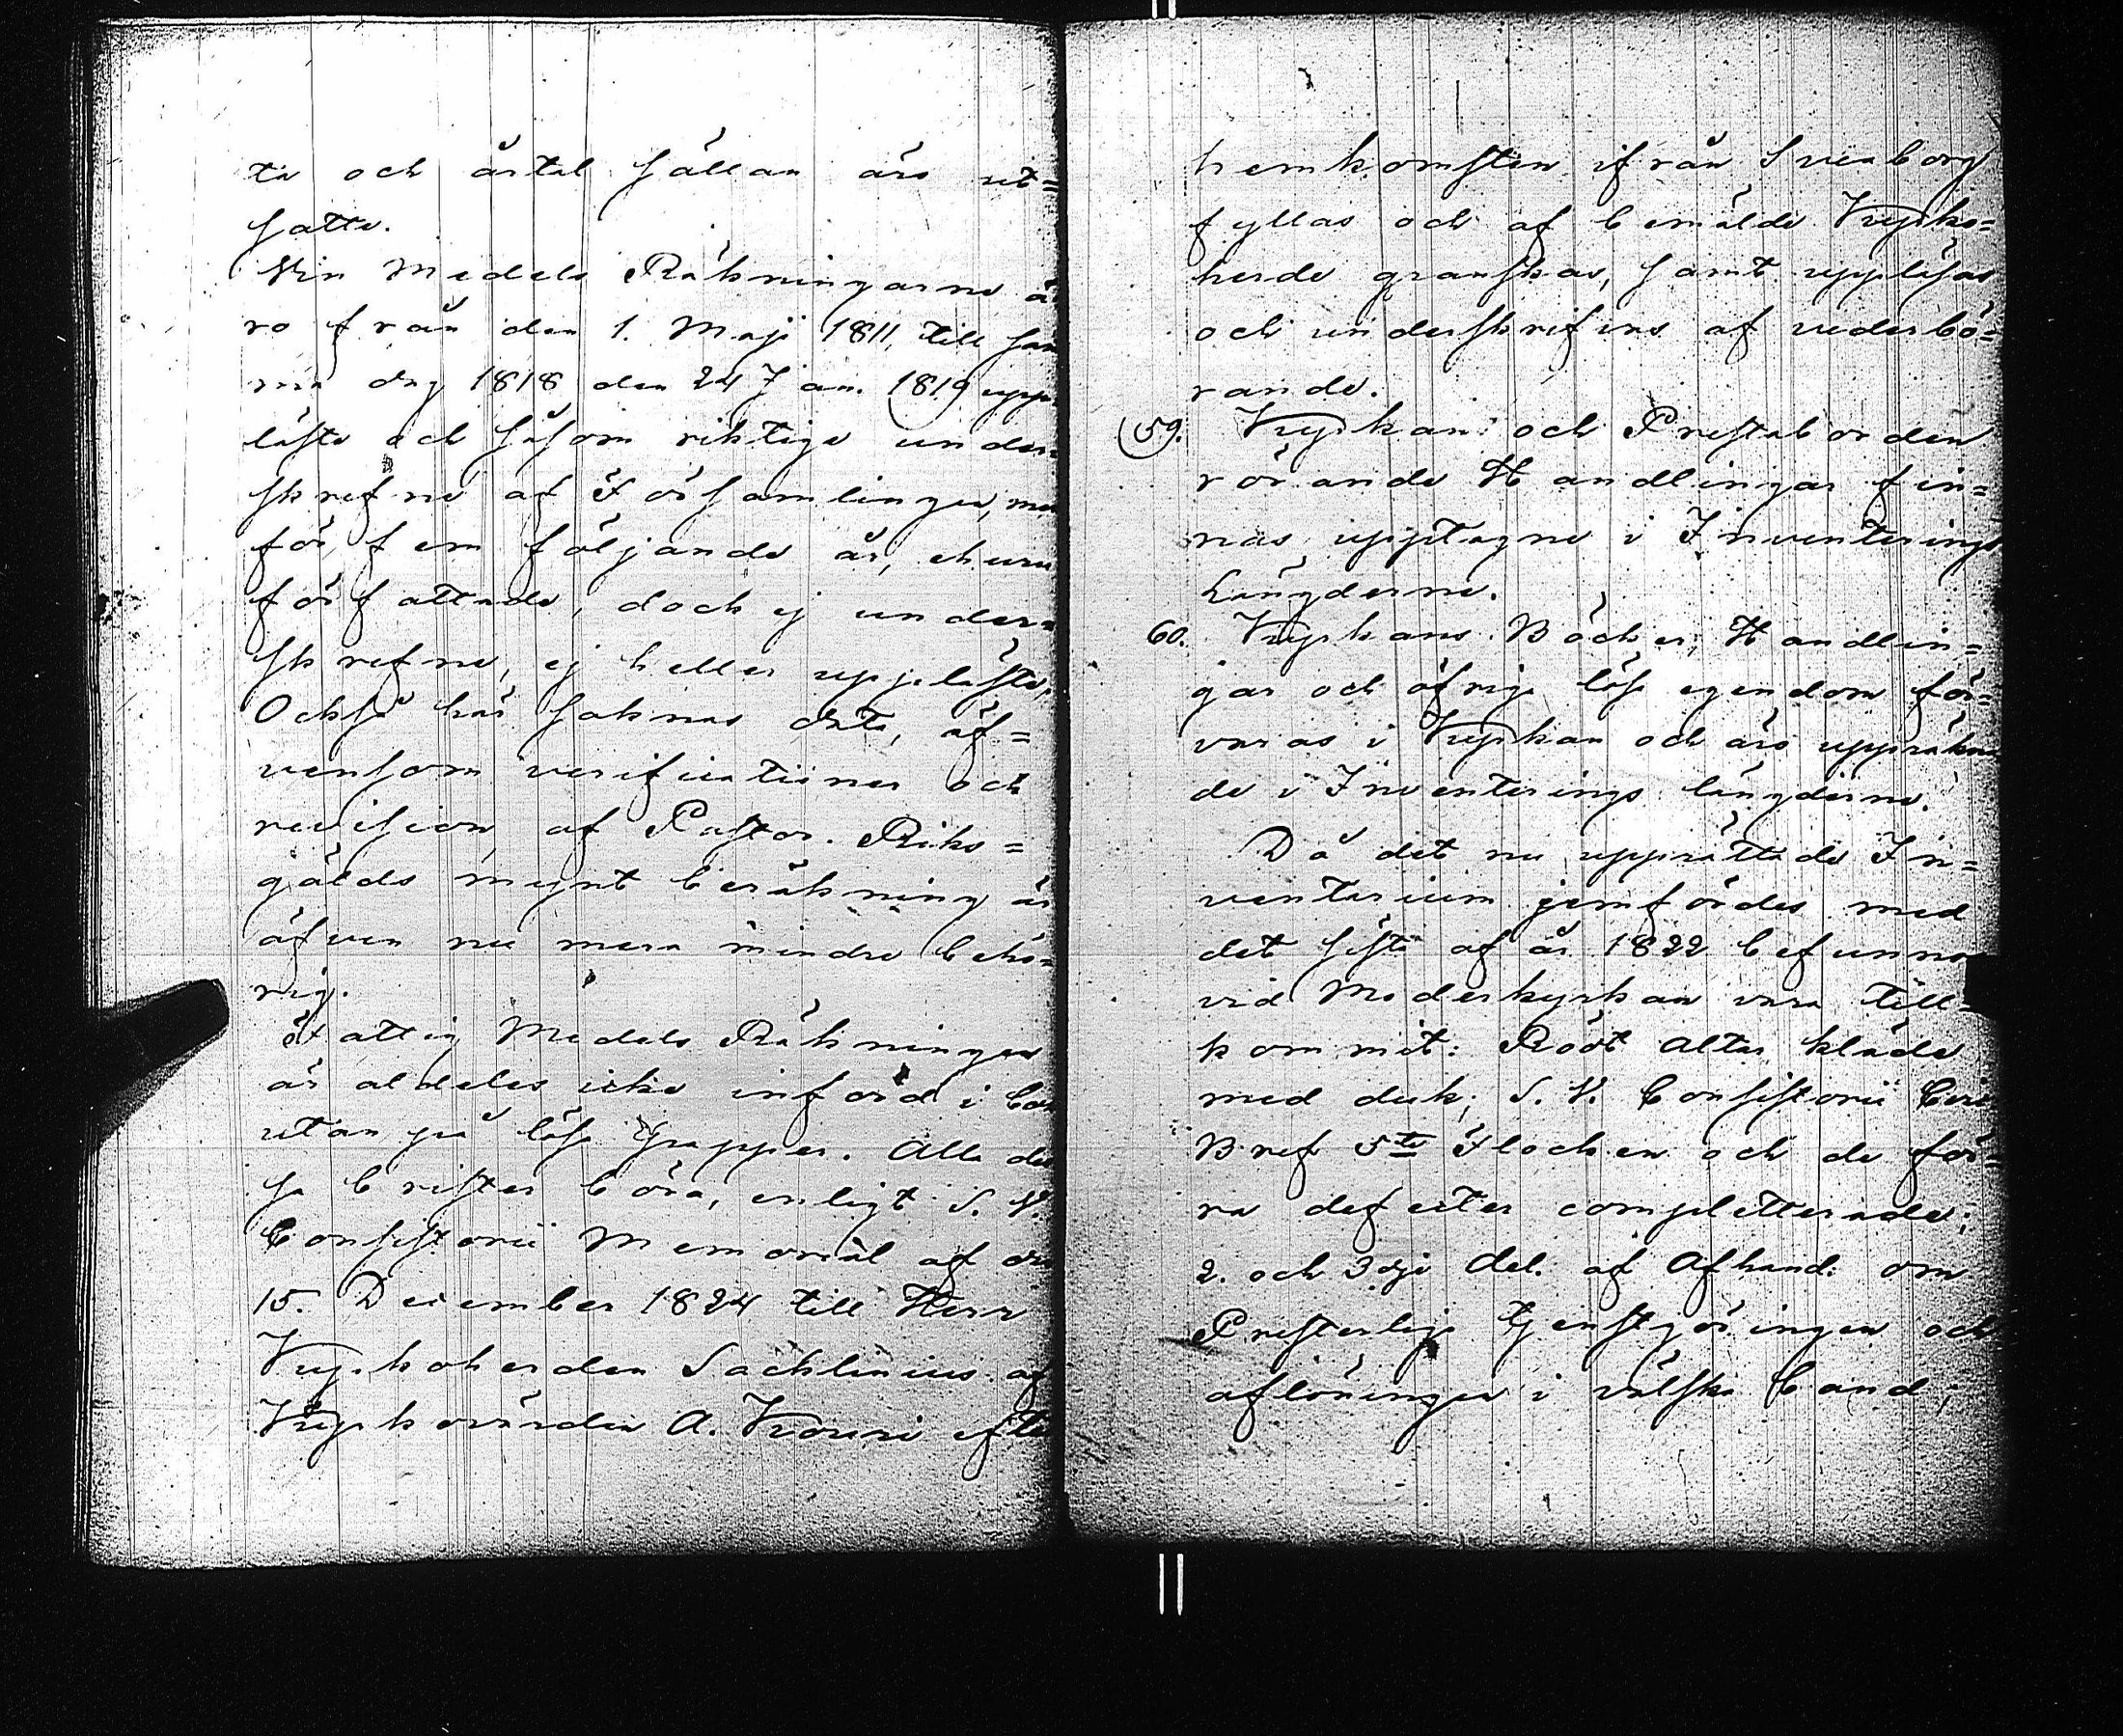 ta och årtal sällan äro ut=
satte.
Vin Medels Räkningarne ä
ro från den 1. Maji 1811, till sam
ma dag 1818 den 24 Jan. 1819 upp
läste och såsom riktige under=
skrefne af Församlingen, men
för fem följande år, ehuru
författade, doch ej under=
skrefne, ej heller uppläste,
Också här saknas data, äf=
vensom verificationer och
revision af Pastor. Riks=
gälds mynt beräkning är
äfven nu mera mindre behö=
rig.
Fattig Medels Räkningen
är aldeles icke införd i bok
utan på löse papper. Alla des
sa brister böra, enligt S. V.
Consistorii Memorial af den
15. December 1824 till Herr
Kyrkoherden Sacklinius af
Kyrkovärden A. Krouvi efter
hemkomsten ifrån Sveaborg
fyllas och af bemälde Kyrko=
herde granskas, samt uppläsas
och underskrifvas af vederbö=
rande.
59. Kyrkan och Prestaborden
rörande Handlingar fin=
nas upptagne i Inventerings
Längderne.
60. Kyrkans Böcker, Handlin=
gar och öfrige lös egendom för=
varas i Kyrkan och äro uppräkna
de i Inventerings längderne.
Då det nu upprättade In=
ventarium jemfördes med
det sista af år 1822 befunnos
vid Moderkyrkan vara till=
kommit: Rödt Altar kläde
med duk; S. V. Consistorii Circ
Bref 5te Flocken och de för=
ra defecter completterade;
2. och 3dje del. af Afhand: om
Presterlige Tjenstgöringen och
aflöningen i välska band;